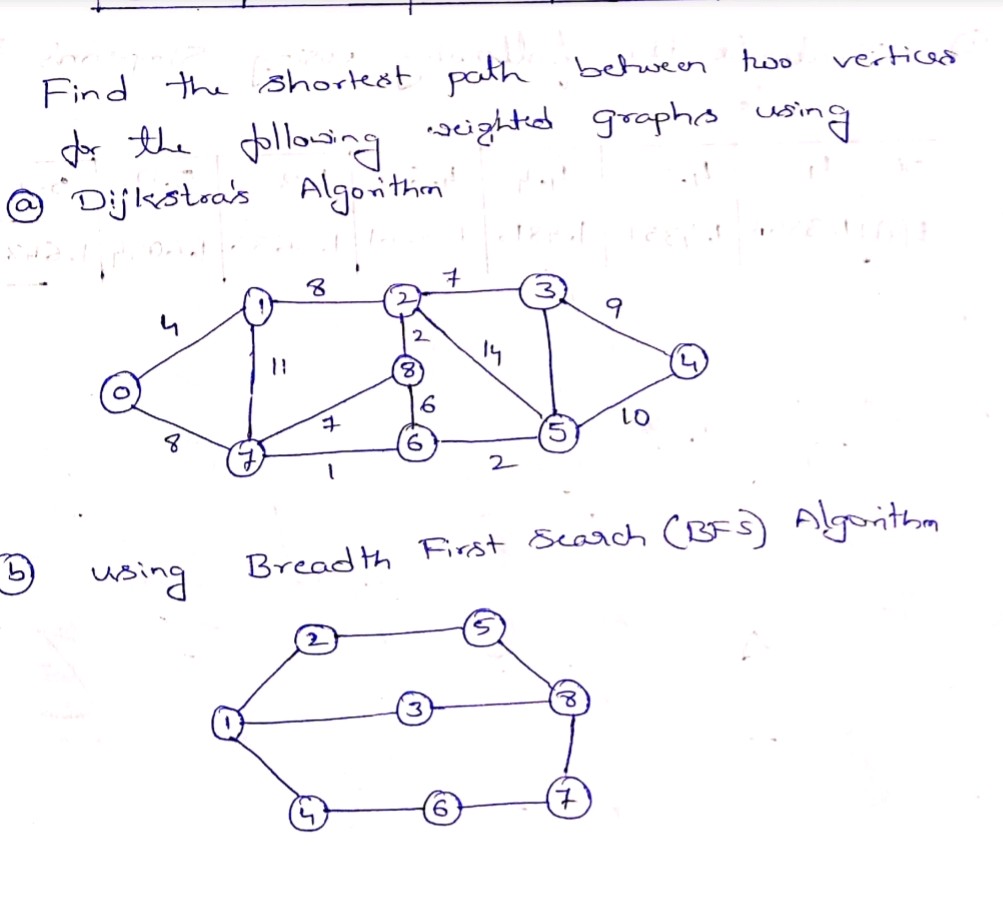 Find the shortest path between two vertices
for the following weighted graphs using
(a) Dijkstra's Algorithm
8 7
1 2 3
4 9
2
11 14
8 4
0
6
7 10
8 7 6 5
1 2
(b) using Breadth First Search (BFS) Algorithm
2 5
8
1 3
4 6 7